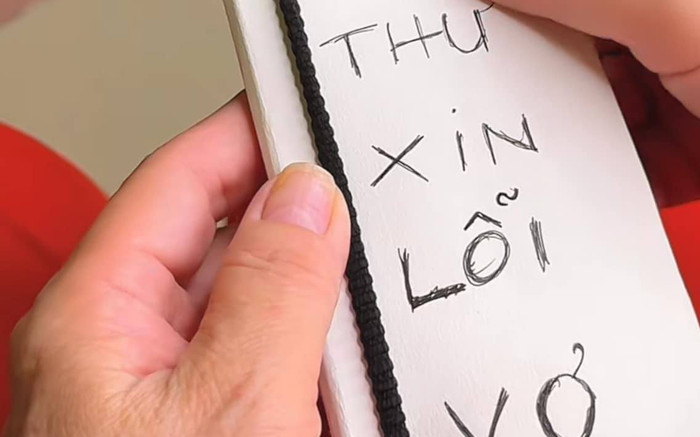 THƯ
XIN
LỖI
VƠ